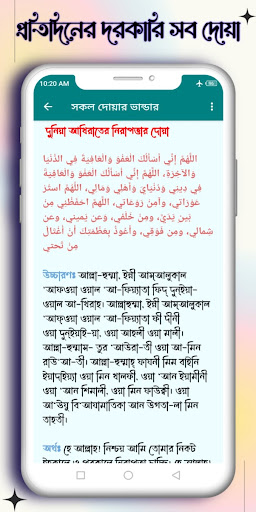 প্রতিদিনের দরকারি সব দোয়া
10:20 AM
সকল দোয়ার ভান্ডার
দুনিয়া আখিরাতের নিরাপত্তার দোয়া
اللَّهُمَّ إِنِّي أَسْأَلُكَ الْعَفْوَ وَالْعَافِيَةَ فِي الدُّنْيَا
وَالْآخِرَةِ، اللَّهُمَّ إِنِّي أَسْأَلُكَ الْعَفْوَ وَالْعَافِيَةَ
فِي دِينِي وَدُنْيَايَ وَأَهْلِي وَمَالِي، اللَّهُمَّ اسْتُرْ
عَوْرَاتِي، وَآمِنْ رَوْعَاتِي، اللَّهُمَّ احْفَظْنِي مِنْ
بَيْنِ يَدَيَّ، وَمِنْ خَلْفِي، وَعَنْ يَمِينِي، وَعَنْ
شِمَالِي، وَمِنْ فَوْقِي، وَأَعُوذُ بِعَظَمَتِكَ أَنْ أُغْتَالَ
مِنْ تَحْتِي
উচ্চারণঃ আল্লা-হুম্মা, ইন্নী আস্আলুকাল
‘আফওয়া ওয়াল ‘আ-ফিয়্যাতা ফিদ্ দুন্ইয়া-
ওয়াল আ-খিরাহ। আল্লাহুম্মা, ইন্নী আস্আলুকাল
‘আফ্ওয়া ওয়াল ‘আ-ফিয়্যাতা ফী দীনী
ওয়া দুন্ইয়াই-য়া, ওয়া আহলী ওয়া মালী।
আল্লা-হুম্মাস- তুর ‘আউরা-তী ওয়া আ-মিন
রাউ‘আ-তী। আল্লা-হুম্মাহ্ ফাযনী মিম বাইনি
ইয়াদাইয়্যা ওয়া মিন খালফী, ওয়া ‘আন ইয়ামীনী
ওয়া ‘আন শিমালী, ওয়া মিন ফাউক্বী। ওয়া
আ‘উযু বি‘আযামাতিকা আন উগতা-লা মিন
তাহতী।
অর্থঃ হে আল্লাহ! নিশ্চয় আমি তোমার নিকট